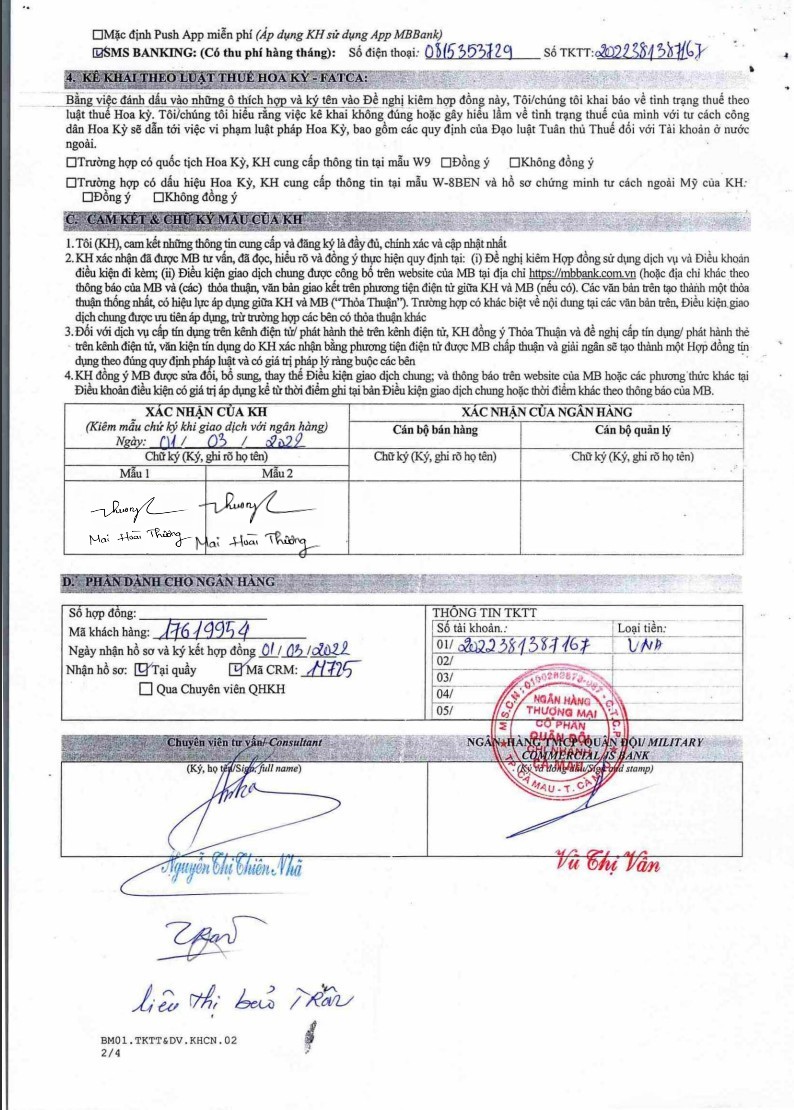 ☐Mặc định Push App miễn phí (Áp dụng KH sử dụng App MBBank)
☑SMS BANKING: (Có thu phí hàng tháng): Số điện thoại: 0815353729 Số TKTT: 2022381387167
4. KÊ KHAI THEO LUẬT THUẾ HOA KỲ - FATCA:
Bằng việc đánh dấu vào những ô thích hợp và ký tên vào Đề nghị kiêm hợp đồng này, Tôi/chúng tôi khai báo về tình trạng thuế theo
luật thuế Hoa kỳ. Tôi/chúng tôi hiểu rằng việc kê khai không đúng hoặc gây hiểu lầm về tình trạng thuế của mình với tư cách công
dân Hoa Kỳ sẽ dẫn tới việc vi phạm luật pháp Hoa Kỳ, bao gồm các quy định của Đạo luật Tuân thủ Thuế đối với Tài khoản ở nước
ngoài.
☐Trường hợp có quốc tịch Hoa Kỳ, KH cung cấp thông tin tại mẫu W9 ☐Đồng ý ☐Không đồng ý
☐Trường hợp có dấu hiệu Hoa Kỳ, KH cung cấp thông tin tại mẫu W-8BEN và hồ sơ chứng minh tư cách ngoài Mỹ của KH:
☐Đồng ý ☐Không đồng ý
C. CAM KẾT & CHỮ KÝ MẪU CỦA KH
1. Tôi (KH), cam kết những thông tin cung cấp và đăng ký là đầy đủ, chính xác và cập nhật nhất
2. KH xác nhận đã được MB tư vấn, đã đọc, hiểu rõ và đồng ý thực hiện quy định tại: (i) Đề nghị kiêm Hợp đồng sử dụng dịch vụ và Điều khoản
điều kiện đi kèm; (ii) Điều kiện giao dịch chung được công bố trên website của MB tại địa chỉ https://mbbank.com.vn (hoặc địa chỉ khác theo
thông báo của MB và (các) thỏa thuận, văn bản giao kết trên phương tiện điện tử giữa KH và MB (nếu có). Các văn bản trên tạo thành một thỏa
thuận thống nhất, có hiệu lực áp dụng giữa KH và MB ("Thỏa Thuận"). Trường hợp có khác biệt về nội dung tại các văn bản trên, Điều kiện giao
dịch chung được ưu tiên áp dụng, trừ trường hợp các bên có thỏa thuận khác
3. Đối với dịch vụ cấp tín dụng trên kênh điện tử/ phát hành thẻ trên kênh điện tử, KH đồng ý Thỏa Thuận và đề nghị cấp tín dụng/ phát hành thẻ
trên kênh điện tử, văn kiện tín dụng do KH xác nhận bằng phương tiện điện tử được MB chấp thuận và giải ngân sẽ tạo thành một Hợp đồng tín
dụng theo đúng quy định pháp luật và có giá trị pháp lý ràng buộc các bên
4. KH đồng ý MB được sửa đổi, bổ sung, thay thế Điều kiện giao dịch chung; và thông báo trên website của MB hoặc các phương thức khác tại
Điều khoản điều kiện có giá trị áp dụng kể từ thời điểm ghi tại bản Điều kiện giao dịch chung hoặc thời điểm khác theo thông báo của MB.
XÁC NHẬN CỦA KH XÁC NHẬN CỦA NGÂN HÀNG
(Kiêm mẫu chữ ký khi giao dịch với ngân hàng) Cán bộ bán hàng Cán bộ quản lý
Ngày: 01 / 03 / 2022
Chữ ký (Ký, ghi rõ họ tên) Chữ ký (Ký, ghi rõ họ tên) Chữ ký (Ký, ghi rõ họ tên)
Mẫu 1 Mẫu 2
Mai Hoài Thương Mai Hoài Thương
D. PHẦN DÀNH CHO NGÂN HÀNG
Số hợp đồng: THÔNG TIN TKTT
Mã khách hàng: 17619954 Số tài khoản.: Loại tiền:
Ngày nhận hồ sơ và ký kết hợp đồng 01 / 03 / 2022 01/ 2022381387167 VND
Nhận hồ sơ: ☑Tại quầy ☑Mã CRM: 11725 02/
03/
☐ Qua Chuyên viên QHKH 04/
05/
NGÂN HÀNG
THƯƠNG MẠI
CỔ PHẦN
QUÂN ĐỘI
CHI NHÁNH
CÀ MAU
TP. CÀ MAU - T. CÀ MAU
Chuyên viên tư vấn/ Consultant NGÂN HÀNG TMCP QUÂN ĐỘI/ MILITARY
COMMERCIAL JS BANK
(Ký, họ tên/Sign, full name) (Ký và đóng dấu/Sign and stamp)
Nguyễn Thị Thiên Nhã Vũ Thị Vân
Liêu Thị bảo Trân
BM01.TKTT&DV.KHCN.02
2/4